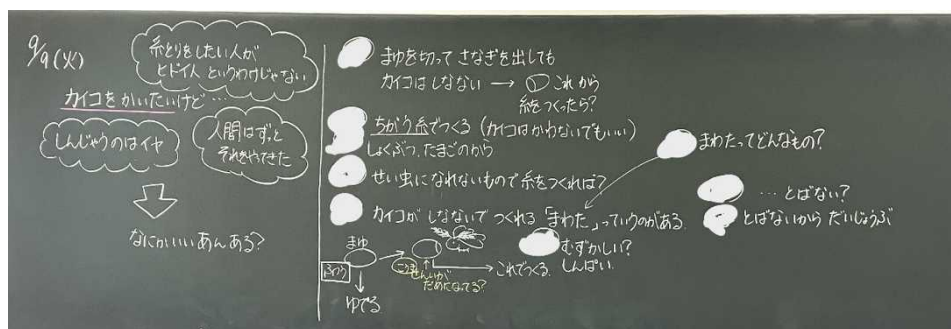 9/9(火)
糸とりをしたい人が
ヒドイ人というわけじゃない
カイコをかいたいけど…
しんじゃうのはイヤ
人間はずっと
それをやってきた
なにかいいあんある?
まゆを切ってさなぎを出しても
カイコはしなない → これから
糸をつくったら?
ちがう糸でつくる (カイコはかわないでもいい)
しょくぶつ、たまごのから
せい虫になれないもので糸をつくれば?
カイコがしなないでつくれる「まわた」っていうのがある。
まわたってどんなもの?
…とばない?
とばないからだいじょうぶ
むずかしい?
しんぱい
まゆ
ふつう
ゆでる
せんいが
だめになってる?
これでつくる